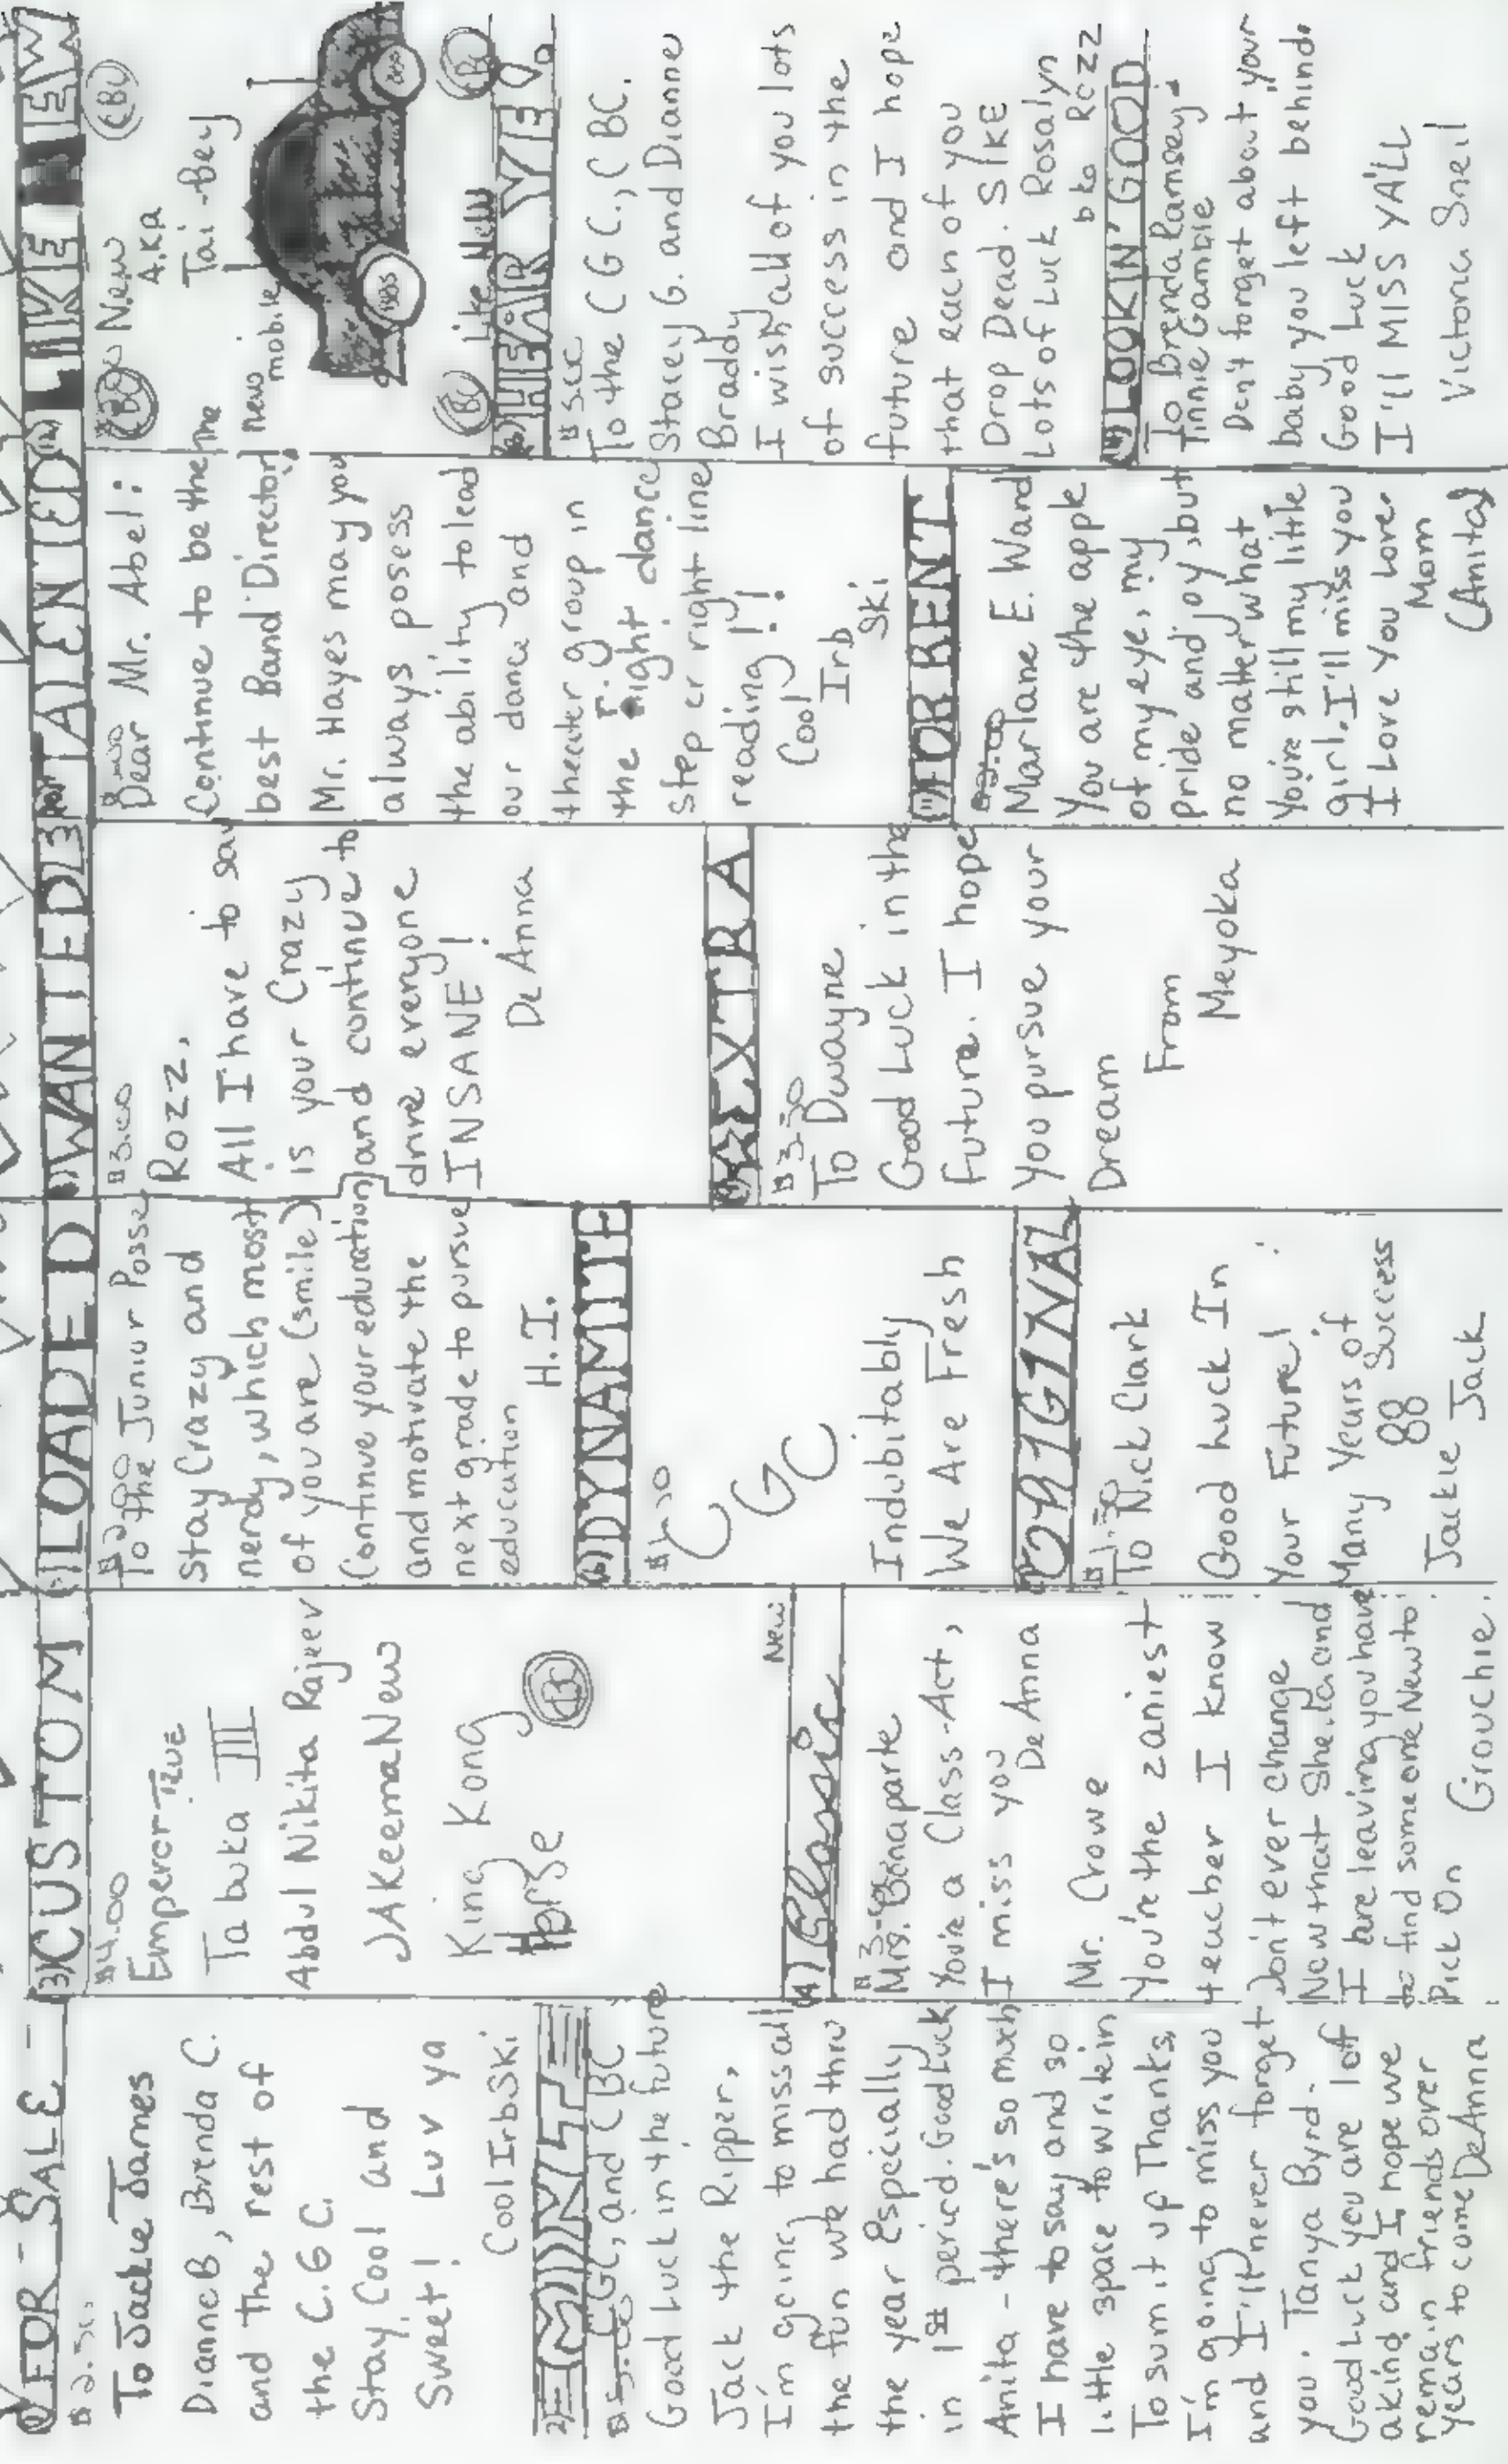 FOR SALE
To Jackie James
Dianne B, Brenda C.
and the rest of
the C.G C.
Stay Cool and
Sweet! Luv ya
Cool Irb Ski
MINT
GC, and CBC
Good Luck in the future
Jack the Ripper,
I'm going to miss all
the fun we had thru
the year Especially
in 1st period. Good Luck
Anita - there's so much
I have to say and so
little space to write in
To sum it up Thanks,
I'm going to miss you
and I'll never forget
you. Tanya Byrd.
Good Luck you are 1 of
a kind and I hope we
remain friends over
years to come DeAnna
(3) CUSTOM
$4.00
Emperor TRUE
Tabuka III
Abdul Nikita Rajeev
JAKeema New
King Kong
Horse
(4) Classic New
Mrs. Bonaparte
You're a Class-Act,
I miss you
DeAnna
Mr. Crowe
You're the zaniest
teacher I know
Don't ever change
Now that She and
I are leaving you have
to find some one New to
Pick On
Grouchie.
LOADED
To the Junior Posse
Stay Crazy and
nerdy, which most
of you are (smile)
Continue your education
and motivate the
next grade to pursue
education
H.I.
(6) DYNAMITE
CGC
Indubitably
We Are Fresh
ORIGINAL
To Nick Clark
Good Luck In
Your Future!
Many Years of
88 Success
Jackie Jack
WANTED
$3.00
Rozz,
All I have to say
is your Crazy
and continue to
drive everyone
INSANE!
DeAnna
EXTRA
To Dwayne
Good Luck in the
future. I hope
You pursue your
Dream
From
Meyoka
TALENTED
Dear Mr. Abel:
Continue to be the
best Band Director
Mr. Hayes may you
always posess
the ability to lead
our dance and
theater group in
the right dance
step or right line
reading!!
Cool
Irb
Ski
FOR RENT
Marlane E. Ward
You are the apple
of my eye, my
pride and joy, but
no matter what
You're still my little
girl. I'll miss you
I Love You Love
Mom
(Anita)
LIKE NEW
New
A.K.A
Tai-Bey
The
new
mobile
Like New
HEAR YE
To the C G C., C BC.
Stacey G. and Dianne
Braddy
I wish all of you lots
of success in the
future and I hope
that each of you
Drop Dead. SIKE
Lots of Luck Rosalyn
Rozz
LOOKIN' GOOD
To Brenda Ramsey
Tinnie Gamble
Don't forget about your
baby you left behind.
Good Luck
I'll MISS YA'LL
Victoria Snell